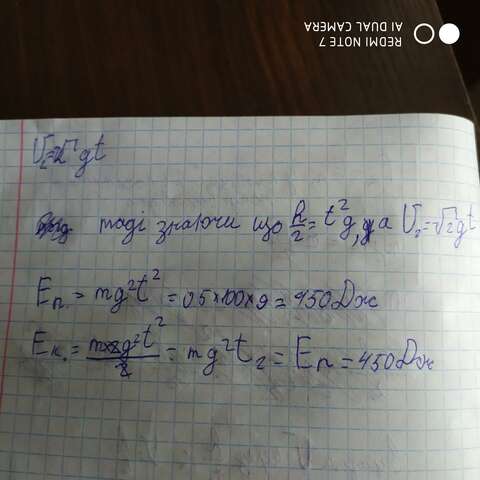 REDMI NOTE 7
AI DUAL CAMERA
V₂=√2 gt
тоді знаючи що h/2 = t²g, а V₂=√2 gt
Eп. = mg²t² = 0.5×100×9 = 450 Дж
Eк. = m×2g²t²/2 = mg²t₂ = Eп = 450 Дж